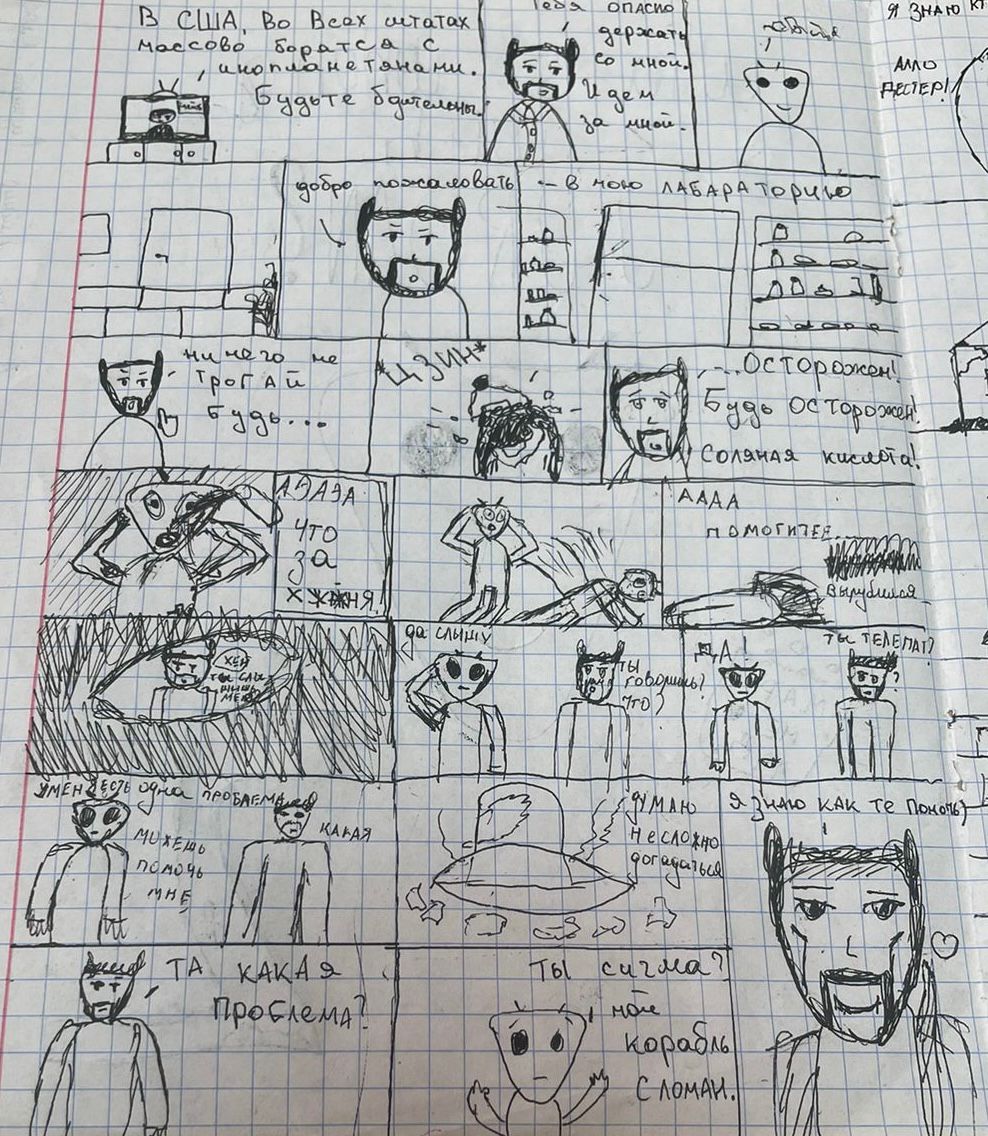 В США, Во Всех штатах
массово борятся с
инопланетянами.
Будьте бдительны.
тебя опасно
держать
со мной.
Идем
за мной.
Я ЗНАЮ
АЛЛО
ДЕСТЕР!
добро пожаловать
-- в мою ЛАБАРАТОРИЮ
ничего не
ТРОГАЙ
Будь...
*ДЗИН*
...ОСТОРОЖЕН!
Будь ОСТОРОЖЕН!
Соляная кислота!
АЭАЭА
ЧТО
за
АААА
ПОМОГИТЕЕ...
Вырубился
ХЕЙ
ТЫ СЛЫ
ШИШЬ
МЕ
да слышу
ТЫ
говоришь?
Что?
ДА!
ТЫ ТЕЛЕПАТ?
У МЕН ЕСТЬ одна ПРОБЛЕМА
МОЖЕШЬ
ПОМОЧЬ
МНЕ
КАКАЯ
ДУМАЮ
Несложно
догадаться
Я ЗНАЮ КАК ТЕ ПОМОЧЬ)
ТА КАКАЯ
ПРОБЛЕМА?
ТЫ СИГМА?
мой
корабль
СЛОМАН.